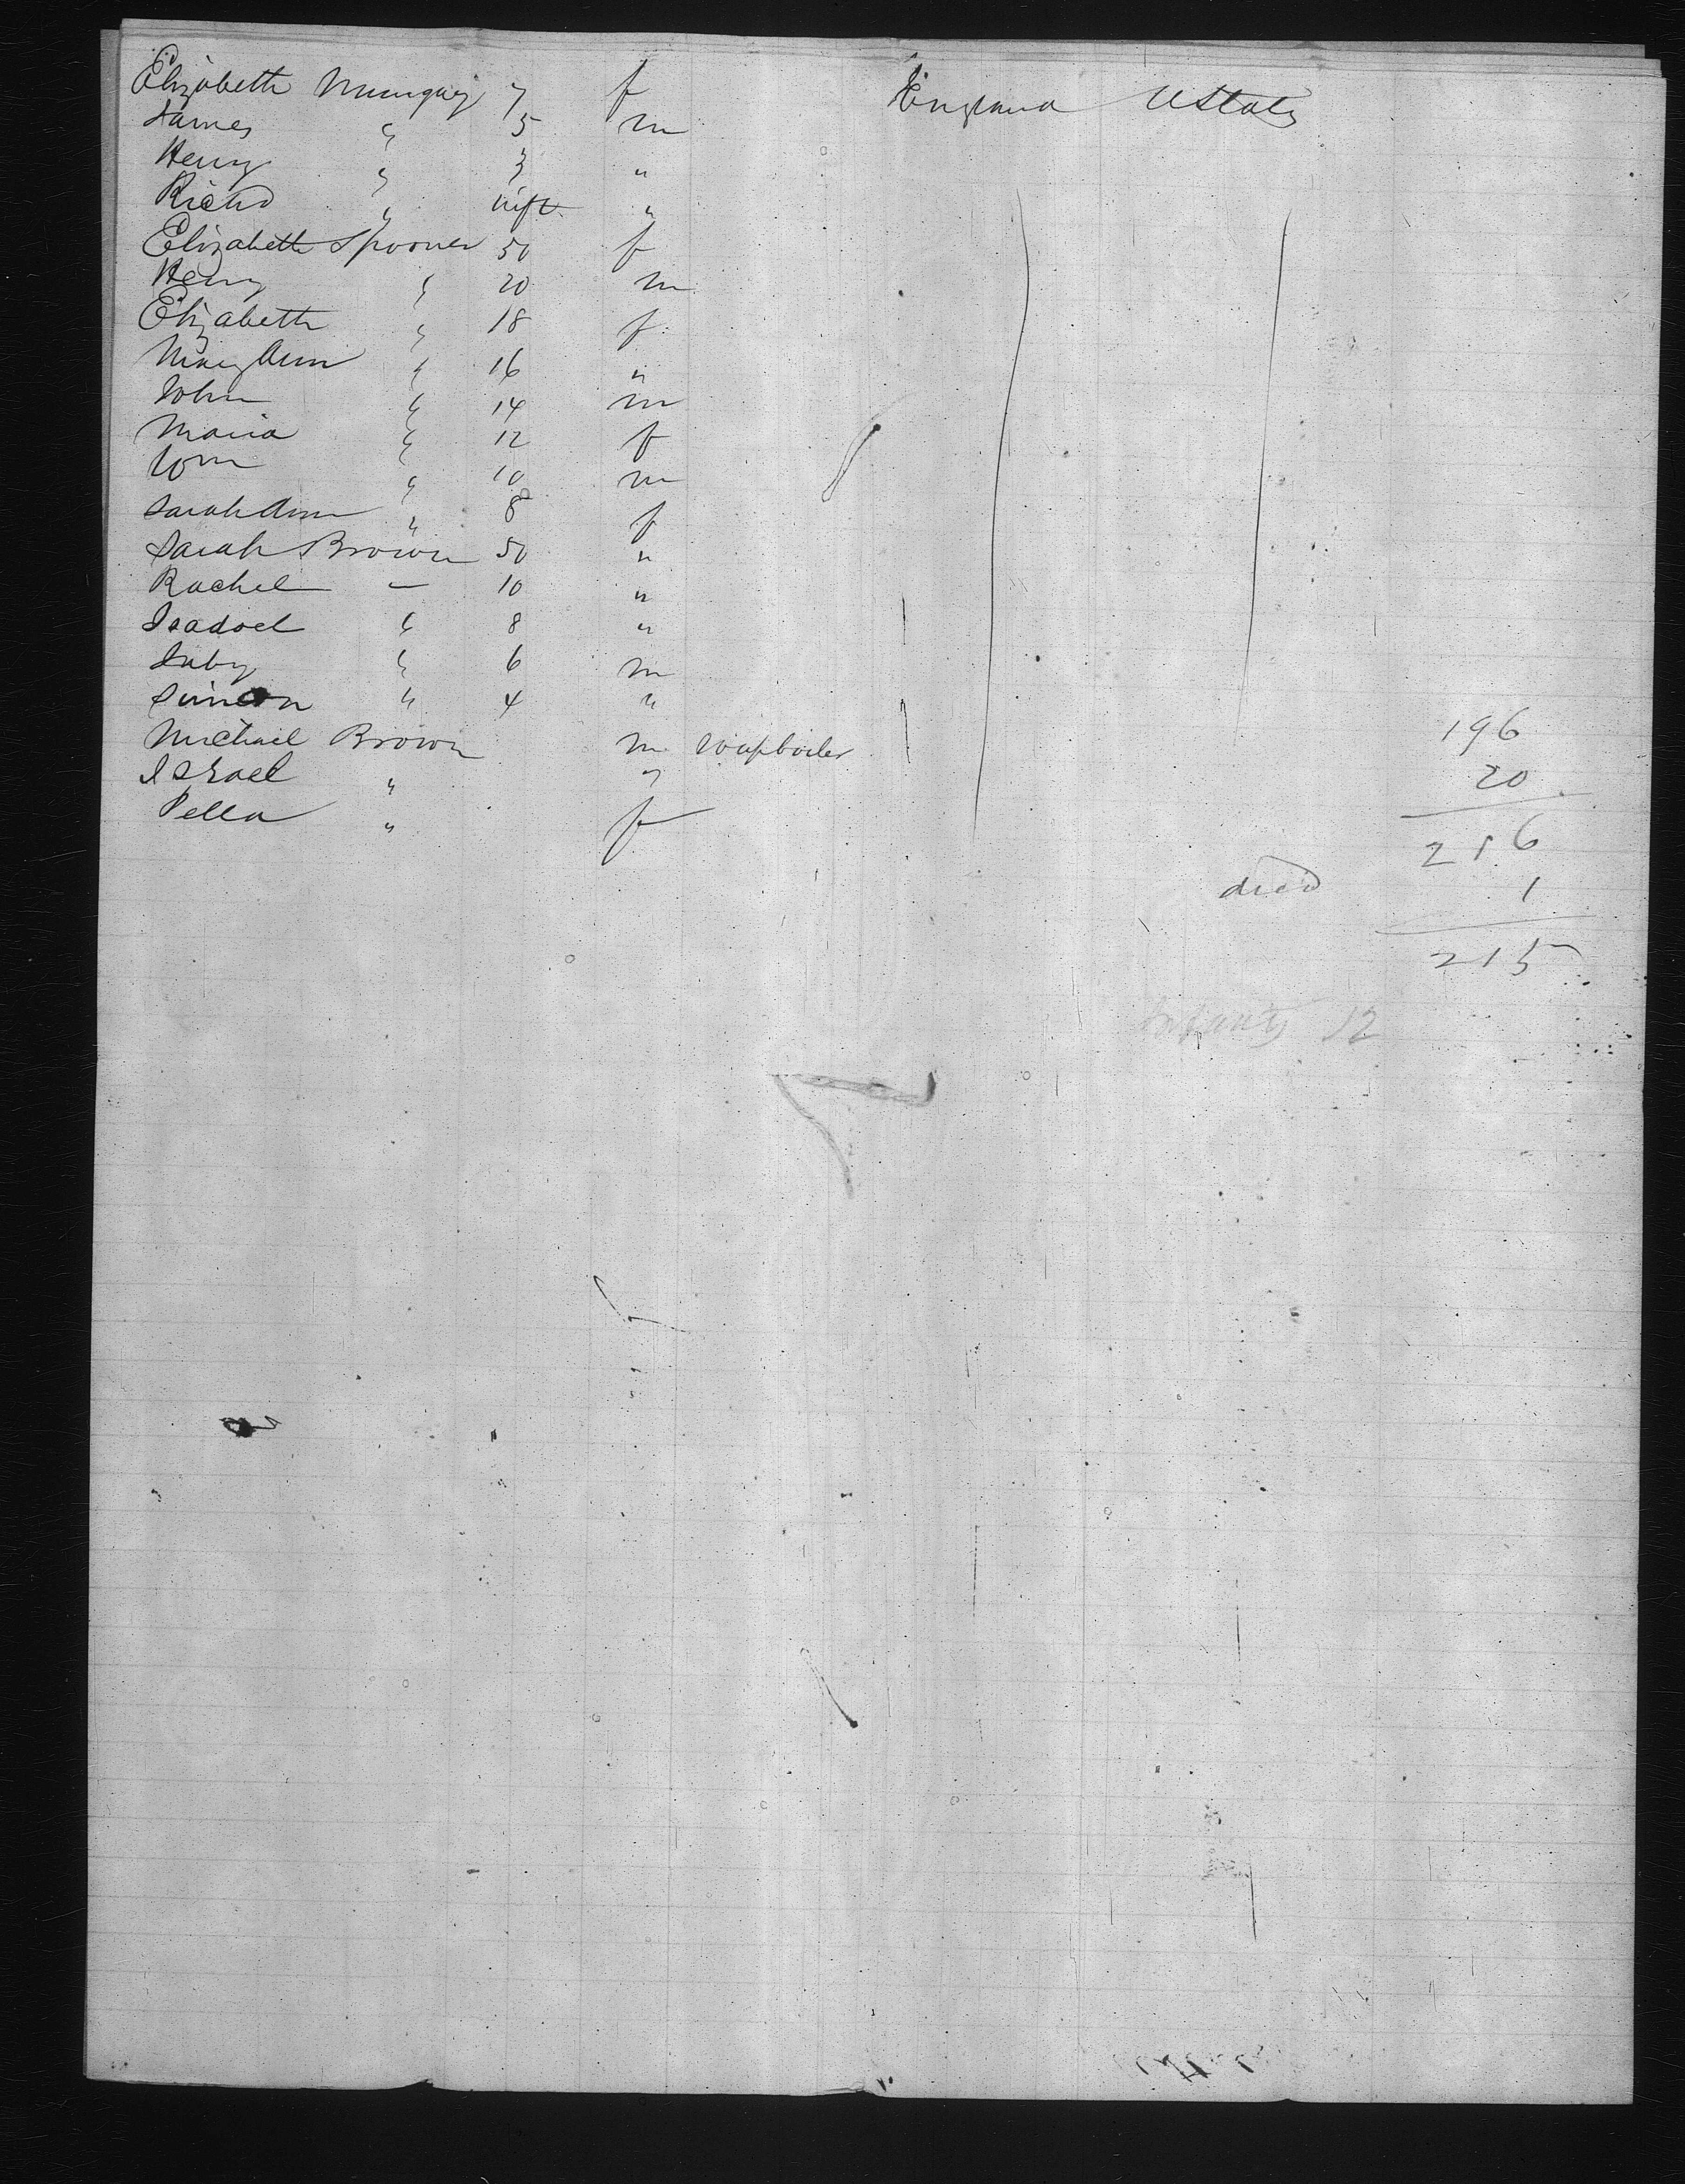 Elizabeth 7 f England UStates
James " 5 m
Henry " 3 "
Richd " inft "
Elizabeth Spooner 50 f
Henry " 20 m
Elizabeth " 18 f
Mary Ann " 16 "
John " 14 m
Maria " 12 f
Wm " 10 m
Sarah Ann " 8 f
Sarah Brown 50 "
Rachel — 10 "
" 8 "
" 6 m
Simeon " 4 "
Michael Brown m soapboiler
Israel " "
Pella " f
196
20
216
died 1
215
Infants 12